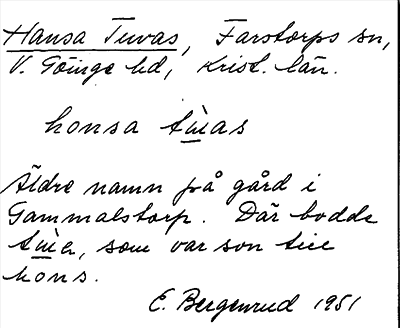 Hansa Tuvas, Farstorps sn,
V. Göinge hd, Krist. län.
honsa tùas
Äldre namn på gård i
Gammalstorp. Där bodde
som var son till
hons.
E. Bergenrud 1951